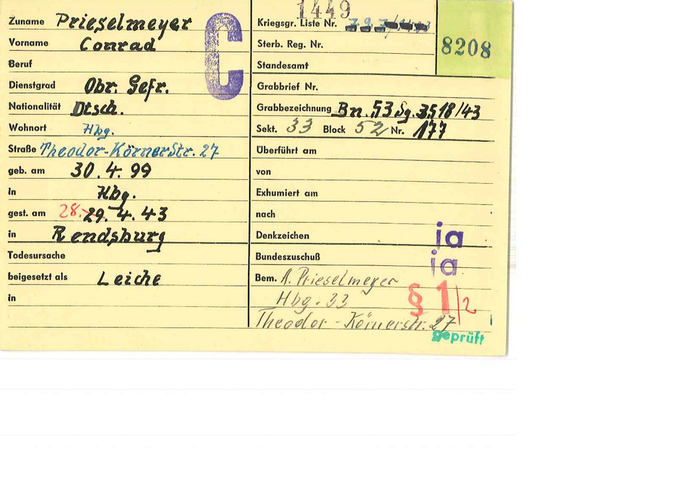 Zuname Prieselmeyer
Vorname Conrad
Beruf
Dienstgrad Obr. Gefr.
Nationalität Dtsch.
Wohnort Hbg.
Straße Theodor-Körnerstr. 27
geb. am 30.4.99
in Hbg.
gest. am 28. 29.4.43
in Rendsburg
Todesursache
beigesetzt als Leiche
in
C
1449
Kriegsgr. Liste Nr.
8208
Sterb. Reg. Nr.
Standesamt
Grabbrief Nr.
Grabbezeichnung Bn. 53 Sg. 3518/43
Sekt. 33 Block 52 Nr. 177
Überführt am
von
Exhumiert am
nach
Denkzeichen ja
Bundeszuschuß ja
Bem. A. Prieselmeyer
Hbg. 33
§ 1/2
Theodor-Körnerstr. 27
geprüft